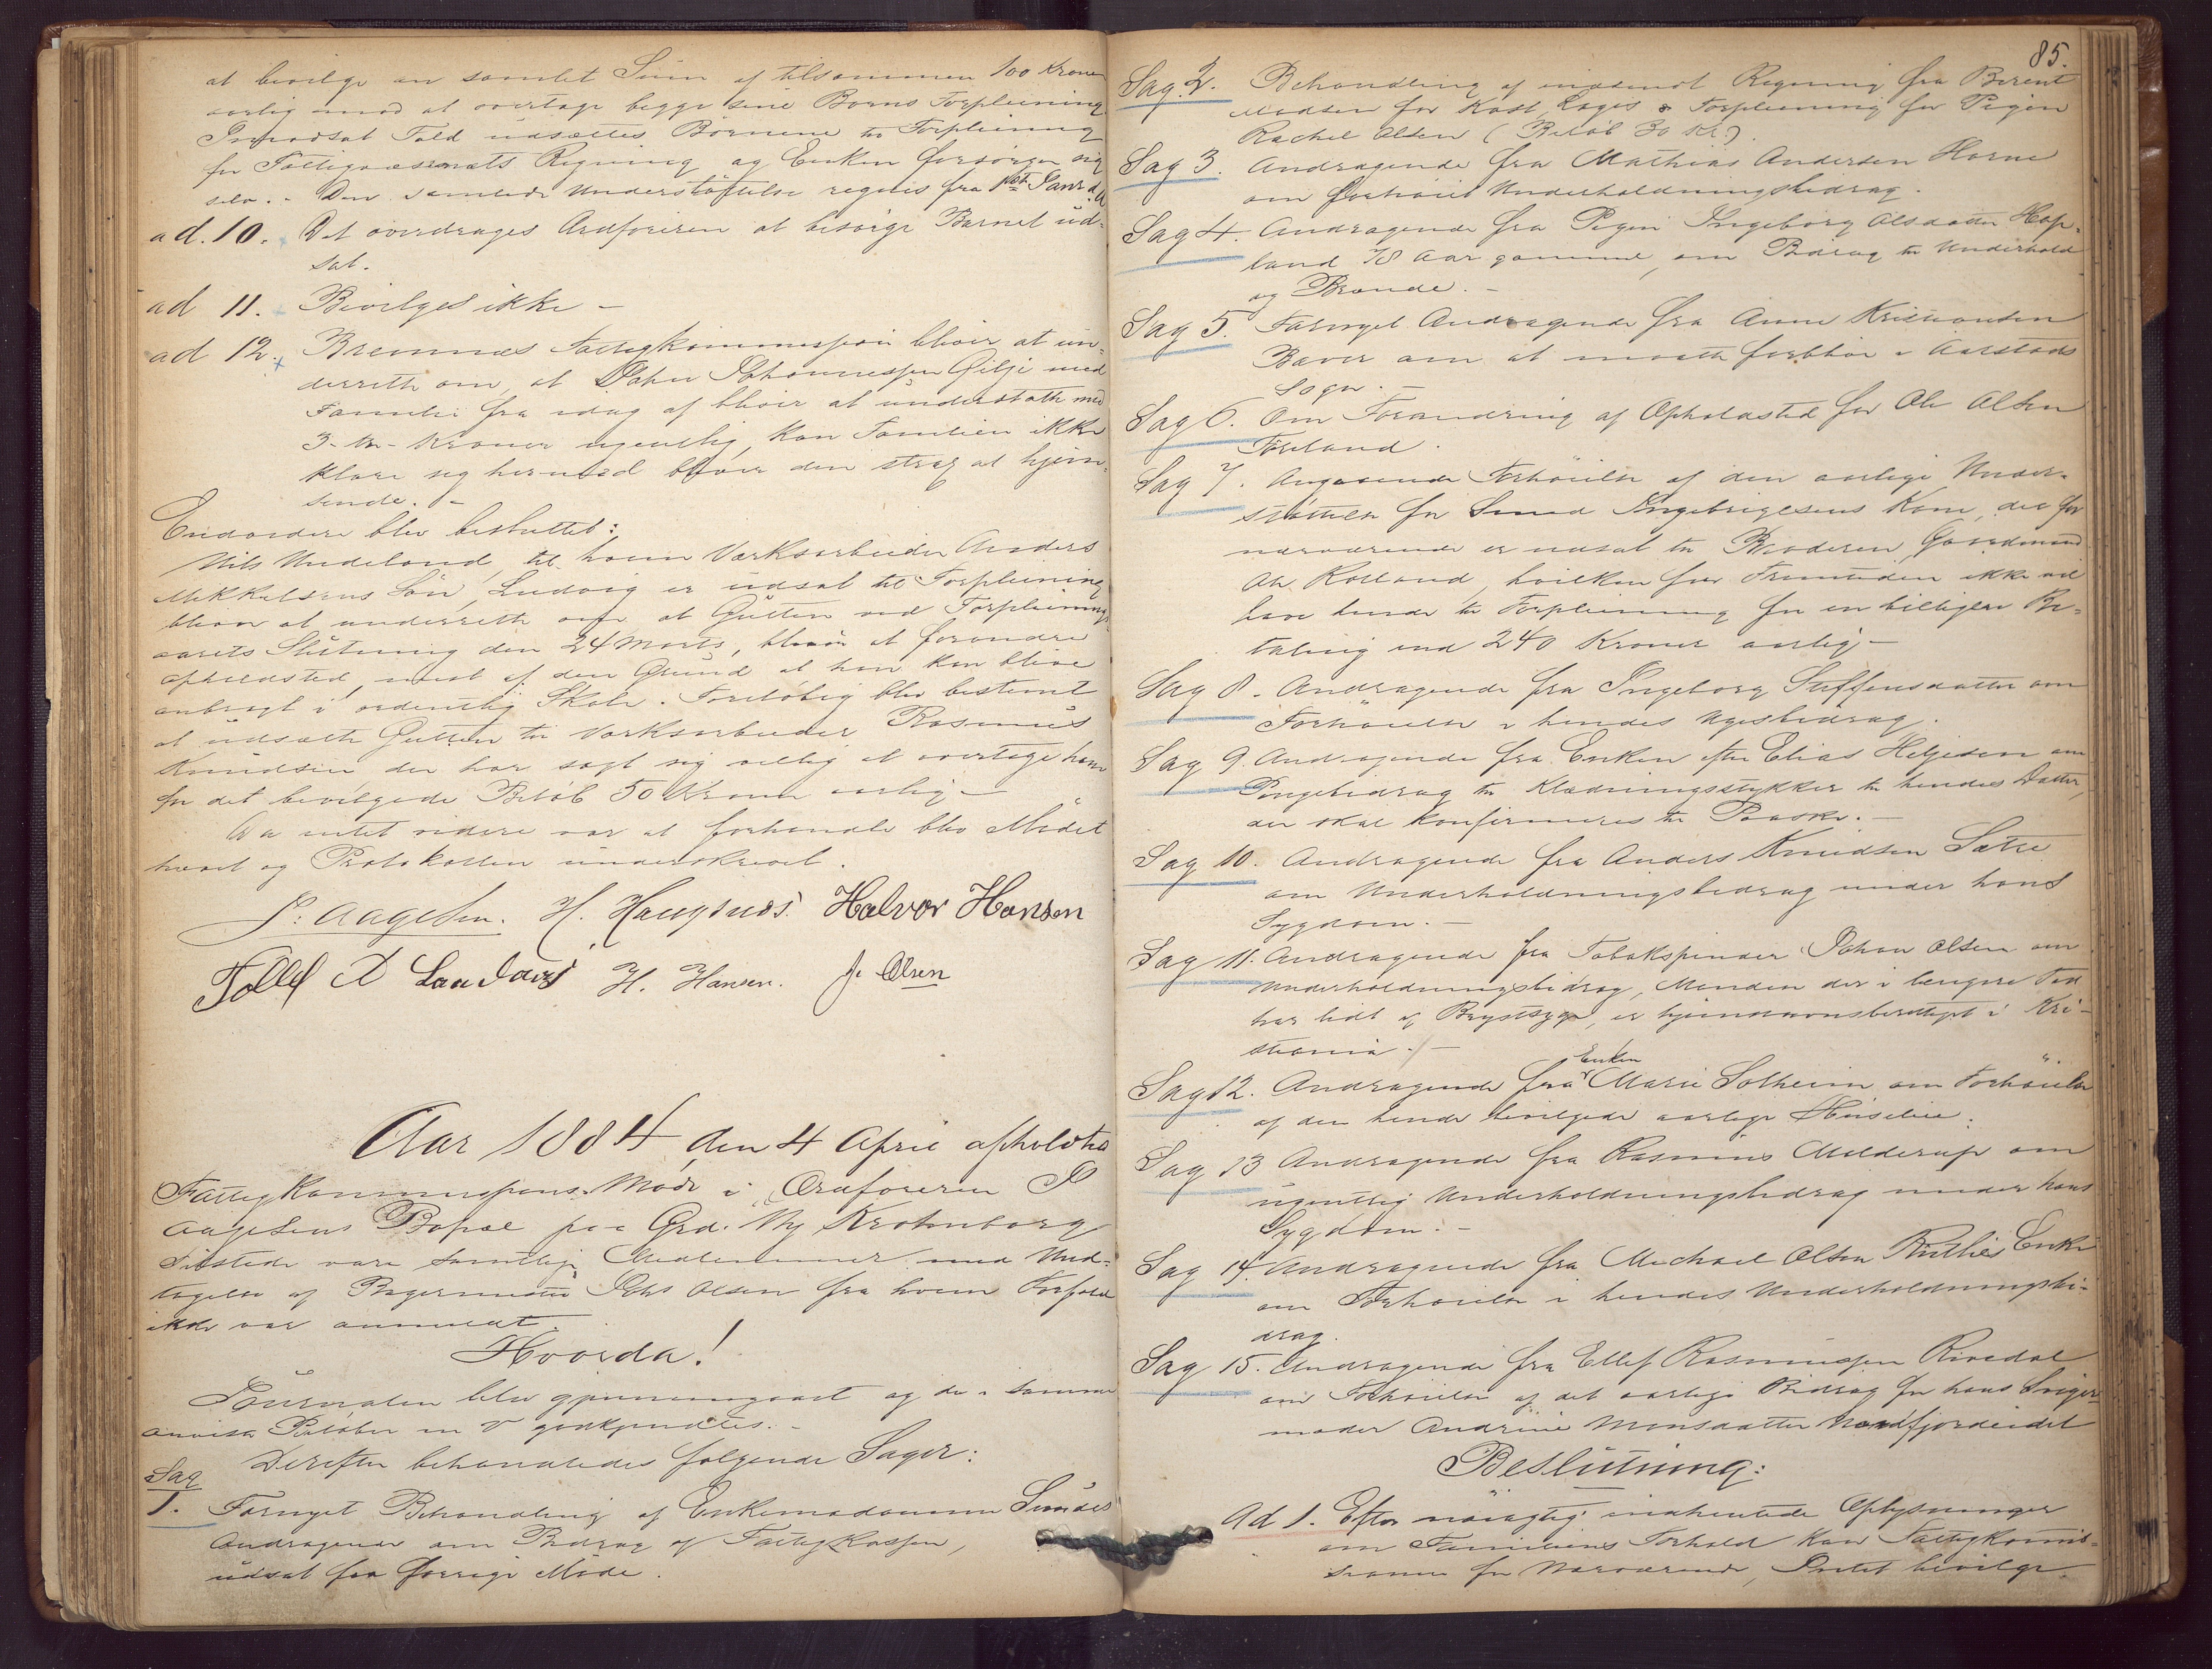 at bevilge en samlet Sum af tilsammen 100 Kroner
aarlig mod at overtage begge sine Børns Forpleining
I modsat Fald udsættes Børnene til Forpleining
for Fattigvæsenets Regning og Enken forsørger sig
selv. - Den samlede Understøttelse regnes fra 1ste Janr d. A
ad. 10. Det overdrages Ordføreren at besørge Barnet ud-
sat.
ad 11. Bevilges ikke -
ad 12. Bremnæs Fattigkommission bliver at un-
derrette om, at John Johannessen Gilje med
Familie fra idag af bliver at understøtte med
3 - tre - Kroner ugentlig, kan Familien ikke
klare sig hermed bliver den strax at hjem-
sende. -
Endvidere blev besluttet:
Nils Undeland, til hvem Værksarbeider Anders
Mikkelsens Søn, Ludvig er udsat til Forpleining
bliver at underrette om at Gutten ved Forpleinings-
aarets Slutning den 24 Marts, bliver at forandre
opholdsted, mest af den Grund at han kan blive
anbragt i ordentlig Skole. Foreløbig blev bestemt
at udsætte Gutten til Værksarbeider Rasmus
Knudsen der har sagt sig villig at overtage ham
for det bevilgede Beløb 50 Kroner aarlig -
Da intet videre var at forhandle blev Mødet
hævet og Protokollen underskrevet.
P. Aagesen. H. Haugsnæs. Halvor Hansen
Tollef H. Hansen. J. Olsen
Aar 1884 den 4 April afholdtes
Fattigkommissions Møde i Ordføreren P
Aagesens Bopæl paa Grd. Ny Krohnborg
Tilstede vare samtlige Medlemmer med Und-
tagelse af Bagermester Johs Olsen fra hvem Forfald
ikke var anmeldt.
Hvorda!
Journalen blev gjennemgaaet og de i samme
anviste Beløber godkjendtes. -
Derefter behandledes følgende Sager:
Sag
1. Fornyet Behandling af Enkemadamme Sundes
Andragende om Bidrag af Fattigkassen,
udsat fra forrige Møde.
85.
Sag. 2. Behandling af indsendt Regning fra Berent
Madsen for Kost, Logis & Forpleining for Pigen
Rachel Olsen (Beløb 30 Kr.).
Sag 3. Andragende fra Mathias Andersen Horne
om forhøiet Underholdningsbidrag.
Sag 4. Andragende fra Pigen Ingeborg Olsdatter Hop-
land 78 Aar gammel, om Bidrag til Underhold
og Brænde. -
Sag 5. Fornyet Andragende fra Anne Kristiansen
Bæver om at maatte forblive i Aarstads
Sogn. -
Sag 6. Om Forandring af Opholdsted for Ole Olsen
Føreland.
Sag 7. Angaaende Forhøielse af den aarlige Under-
støttelse for Smed Ingebrigtsens Kone, der for
nærværende er udsat til Broderen Gaardmand
Ole Kolland, hvilken for Fremtiden ikke vil
have hende til Forpleining for en billigere Be-
taling end 240 Kroner aarlig -
Sag 8. Andragende fra Ingeborg Steffensdatter om
Forhøielse i hendes Ugesbidrag.
Sag 9. Andragende fra Enken efter Elias Helgesen om
Pengebidrag til Klædningsstykker til hendes Datter,
der skal konfirmeres til Paaske. -
Sag 10. Andragende fra Anders Knudsen Sætre
om Underholdningsbidrag under hans
Sygdom. -
Sag 11. Andragende fra Tobakspinder Johan Olsen om
Underholdningsbidrag, Manden der i længere Tid
har lidt af Brystsyge, er hjemstavnsberettiget i Kri-
stiania. -
Sag 12. Andragende fra Enken Marie Solheim om Forhøielse
af den hende bevilgede aarlige Husleie.
Sag 13 Andragende fra Rasmus Molderup om
ugentlig Underholdningsbidrag under hans
Sygdom. -
Sag 14. Andragende fra Michael Olsen Enke
om Forhøielse i hendes Underholdningsbi-
drag.
Sag 15. Andragende fra Ellef Rasmussen Rivedal
om Forhøielse af det aarlige Bidrag for hans Sviger-
moder Andrine Monsdatter Nordfjordeidet
Beslutning:
Ad 1. Efter nøiagtig indhentede Oplysninger
om Familiens Forhold kan Fattigkommis-
sionen for Nærværende, Intet bevilge.